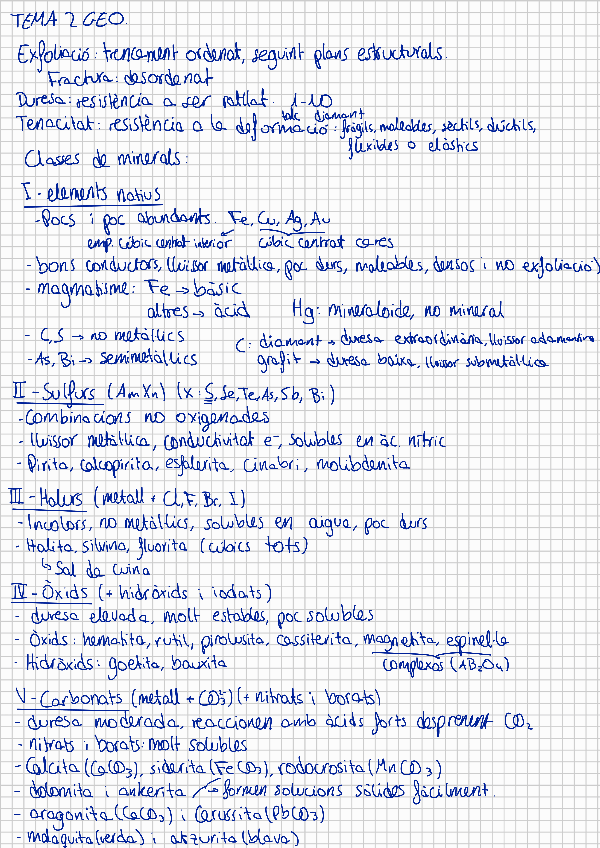 TEMA 2 GEO.
Exfoliació: trencament ordenat, seguint plans estructurals.
Fractura: desordenat
Duresa: resistència a ser ratllat. 1-10
talc diamant
Tenacitat: resistència a la deformació: fràgils, maleables, sèctils, dúctils,
flexibles o elàstics
Classes de minerals:
I - elements natius
- Pocs i poc abundants. Fe, Cu, Ag, Au
emp. cúbic centrat interior cúbic centrat cares
- bons conductors, lluissor metàl·lica, poc durs, maleables, densos i no exfoliació)
- magmatisme: Fe → bàsic
altres → àcid Hg: mineraloide, no mineral
- C, S → no metàl·lics
C: diamant → duresa extraordinària, lluissor adamantina
- As, Bi → semimetàl·lics
grafit → duresa baixa, lluissor submetàl·lica
II - Sulfurs (AmXn) (X: S, Se, Te, As, Sb, Bi)
- Combinacions no oxigenades
- lluissor metàl·lica, conductivitat e-, solubles en àc. nítric
- Pirita, calcopirita, esfalerita, cinabri, molibdenita
III - Halurs (metall + Cl, F, Br, I)
- Incolors, no metàl·lics, solubles en aigua, poc durs
- Halita, silvina, fluorita (cúbics tots)
↳ Sal de cuina
IV - Òxids (+ hidròxids i iodats)
- duresa elevada, molt estables, poc solubles
- Òxids: hematita, rutil, pirolusita, cassiterita, magnetita, espinel·la
- Hidròxids: goetita, bauxita complexos (AB₂O₄)
V - Carbonats (metall + CO₃²⁻) (+ nitrats i borats)
- duresa moderada, reaccionen amb àcids forts desprenent CO₂
- nitrats i borats: molt solubles
- Calcita (CaCO₃), siderita (FeCO₃), rodocrosita (MnCO₃)
- dolomita i ankerita → formen solucions sòlides fàcilment.
- aragonita (CaCO₃) i cerussita (PbCO₃)
- malaquita (verda) i atzurita (blava)